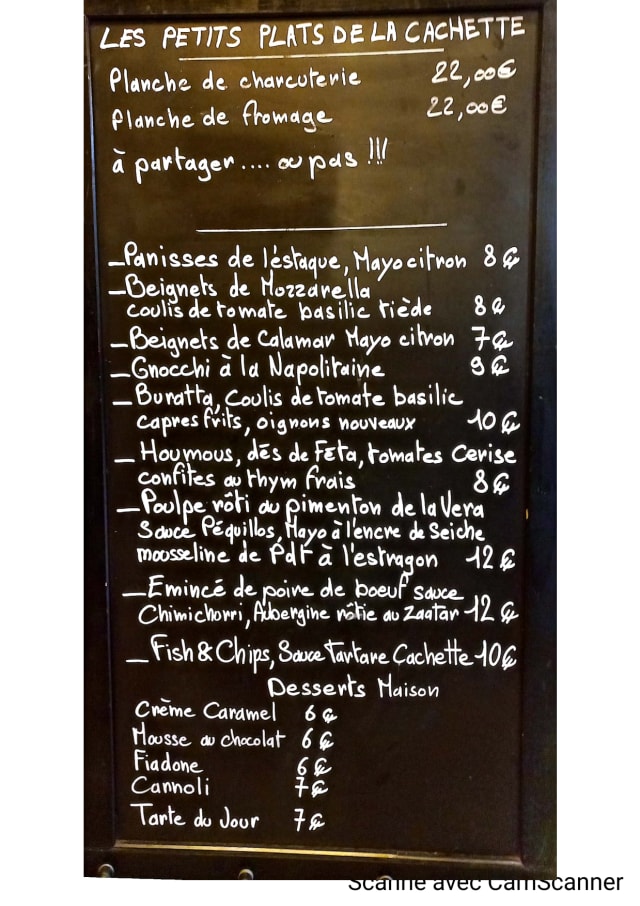 LES PETITS PLATS DE LA CACHETTE
Planche de charcuterie 22,00€
Planche de fromage 22,00€
à partager.... ou pas !!!
_Panisses de l'éstaque, Mayo citron 8€
_Beignets de Mozzarella
coulis de tomate basilic tiède 8€
_Beignets de Calamar Mayo citron 7€
_Gnocchi à la Napolitaine 9€
_Buratta, Coulis de tomate basilic
capres frits, oignons nouveaux 10€
_Houmous, dés de Feta, tomates Cerise
confites au thym frais 8€
_Poulpe rôti au pimenton de la Vera
Sauce Péquillos, Mayo à l'encre de Seiche
mousseline de Pdt à l'estragon 12€
_Emincé de poire de boeuf sauce
Chimichorri, Aubergine rôtie au Zaatar 12€
_Fish & Chips, Sauce Tartare Cachette 10€
Desserts Maison
Crème Caramel 6€
Mousse au chocolat 6€
Fiadone 6€
Cannoli 7€
Tarte du Jour 7€
Scanné avec CamScanner